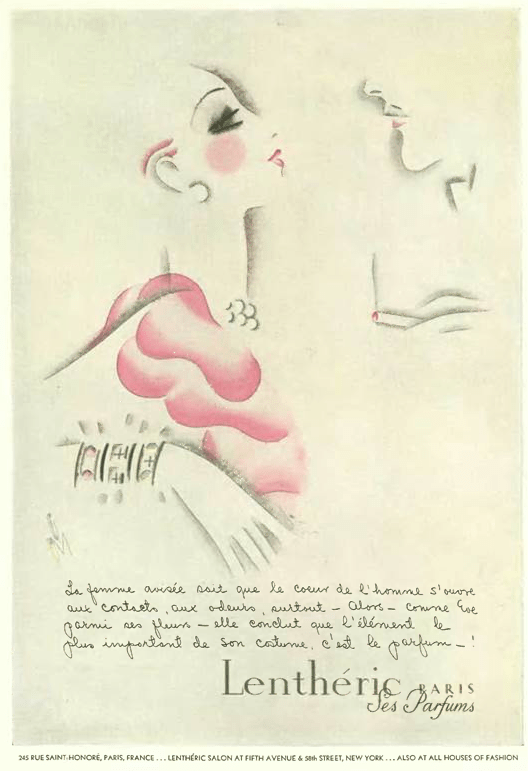 La femme avisée sait que le coeur de l'homme s'ouvre
aux contacts, aux odeurs, surtout — Alors — comme Eve
parmi ses fleurs — elle conclut que l'élément le
plus important de son costume, c'est le parfum — !
Lenthéric PARIS
Ses Parfums
245 RUE SAINT-HONORÉ, PARIS, FRANCE ... LENTHÉRIC SALON AT FIFTH AVENUE & 58th STREET, NEW YORK ... ALSO AT ALL HOUSES OF FASHION